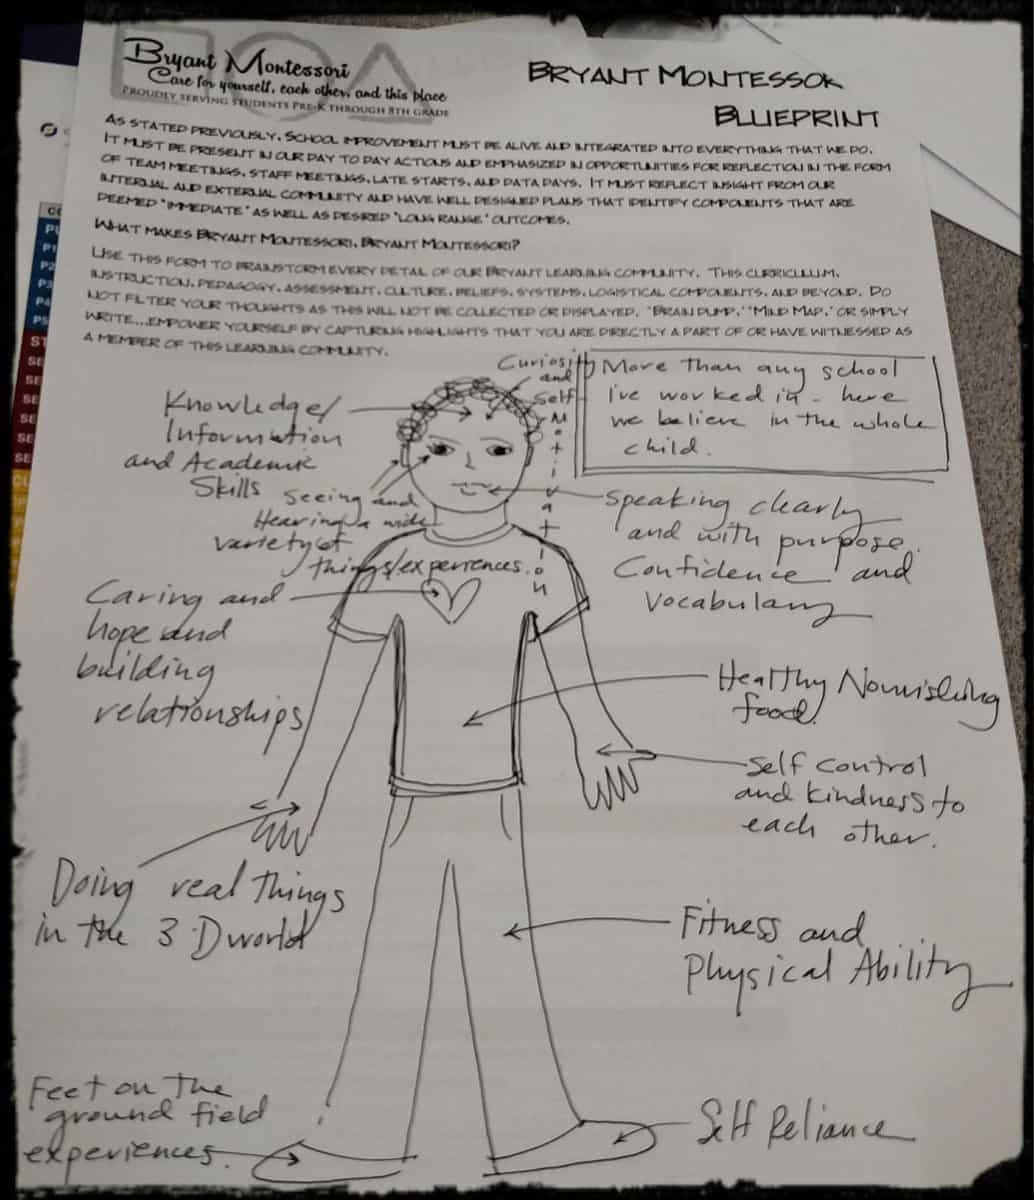 Bryant Montessori
Care for yourself, each other, and this place
PROUDLY SERVING STUDENTS PRE-K THROUGH 8TH GRADE
BRYANT MONTESSOR
BLUEPRINT
AS STATED PREVIOUSLY, SCHOOL IMPROVEMENT MUST BE ALIVE AND INTEGRATED INTO EVERYTHING THAT WE DO.
IT MUST BE PRESENT IN OUR DAY TO DAY ACTIONS AND EMPHASIZED IN OPPORTUNITIES FOR REFLECTION IN THE FORM
OF TEAM MEETINGS, STAFF MEETINGS, LATE STARTS, AND DATA DAYS. IT MUST REFLECT INSIGHT FROM OUR
INTERNAL AND EXTERNAL COMMUNITY AND HAVE WELL DESIGNED PLANS THAT IDENTIFY COMPONENTS THAT ARE
DEEMED "IMMEDIATE" AS WELL AS DESIRED "LONG RANGE" OUTCOMES.
WHAT MAKES BRYANT MONTESSORI, BRYANT MONTESSORI?
USE THIS FORM TO BRAINSTORM EVERY DETAIL OF OUR BRYANT LEARNING COMMUNITY. THIS CURRICULUM,
INSTRUCTION, PEDAGOGY, ASSESSMENT, CULTURE, BELIEFS, SYSTEMS, LOGISTICAL COMPONENTS, AND BEYOND. DO
NOT FILTER YOUR THOUGHTS AS THIS WILL NOT BE COLLECTED OR DISPLAYED. "BRAIN DUMP," "MIND MAP," OR SIMPLY
WRITE...EMPOWER YOURSELF BY CAPTURING HIGHLIGHTS THAT YOU ARE DIRECTLY A PART OF OR HAVE WITNESSED AS
A MEMBER OF THIS LEARNING COMMUNITY.
Curiosity
and
Self
Motivation
More than any school
I've worked in - here
we believe in the whole
child.
Knowledge/
Information
and Academic
Skills
Seeing and
Hearing a wide
variety of
things/experiences.
Speaking clearly
and with purpose.
Confidence and
Vocabulary
Caring and
hope and
building
relationships
Healthy Nourishing
food.
Self control
and kindness to
each other.
Doing real things
in the 3 D world
Fitness and
Physical Ability
Feet on the
ground field
experiences.
Self Reliance
P1
P2
P3
P4
ST
SE
SE
SE
SE
SE
SE